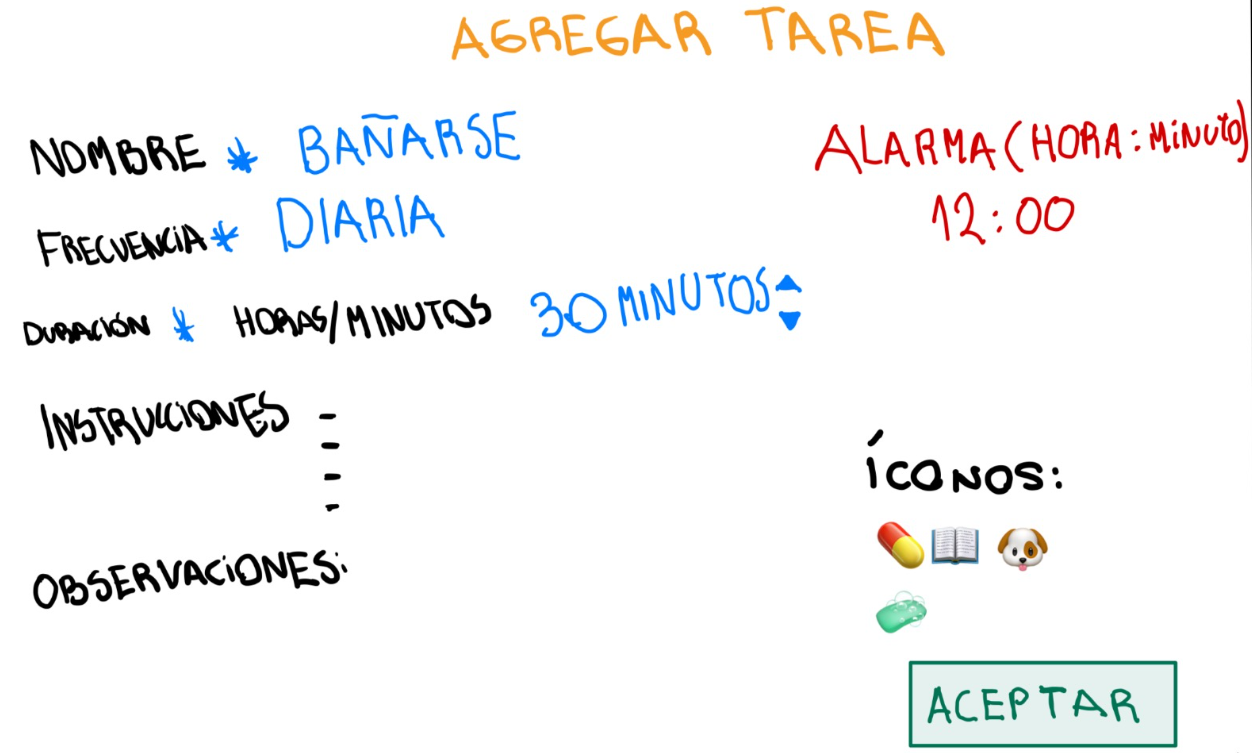 AGREGAR TAREA
NOMBRE * BAÑARSE
FRECUENCIA * DIARIA
DURACIÓN * HORAS/MINUTOS 30 MINUTOS
INSTRUCCIONES -
-
-
-
OBSERVACIONES:
ALARMA (HORA:MINUTO)
12:00
ÍCONOS:
ACEPTAR